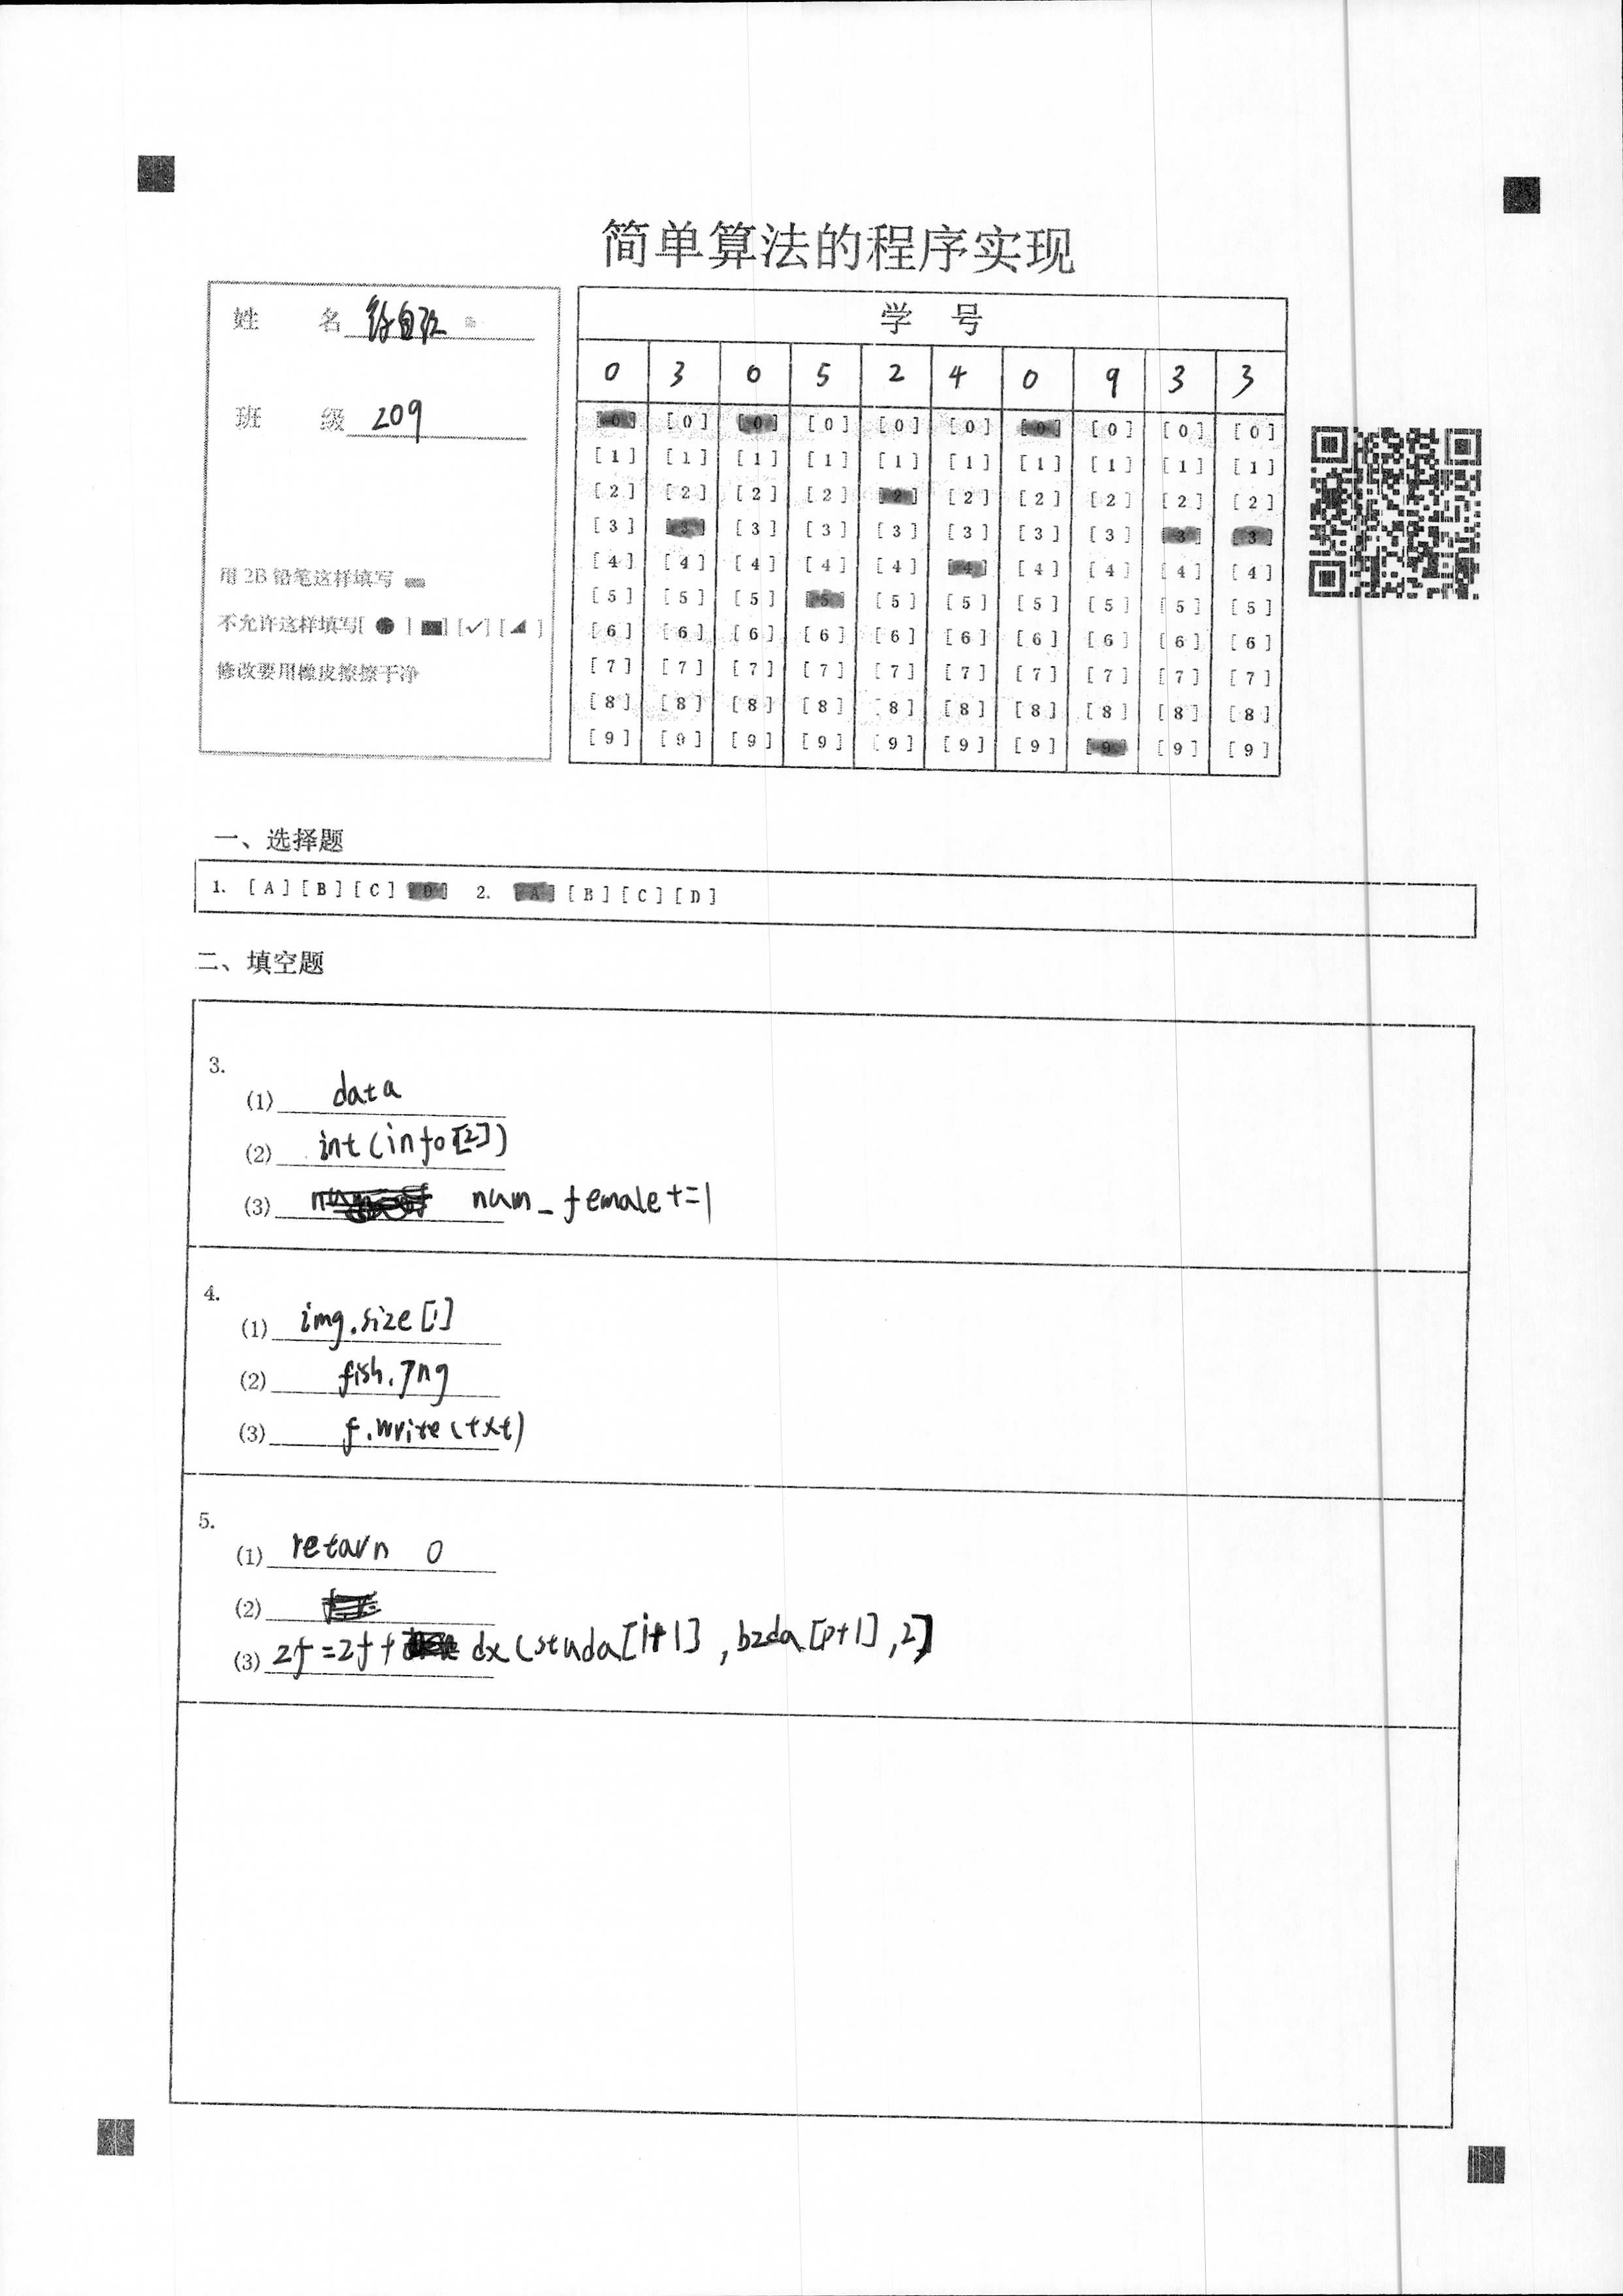 简单算法的程序实现
姓 名
班 级 209
用 2B 铅笔这样填写
不允许这样填写[●] [■] [✓] [◢]
修改要用橡皮擦擦干净
学 号
0 3 0 5 2 4 0 9 3 3
[0] [0] [0] [0] [0] [0] [0] [0] [0] [0]
[1] [1] [1] [1] [1] [1] [1] [1] [1] [1]
[2] [2] [2] [2] [2] [2] [2] [2] [2] [2]
[3] [3] [3] [3] [3] [3] [3] [3] [3] [3]
[4] [4] [4] [4] [4] [4] [4] [4] [4] [4]
[5] [5] [5] [5] [5] [5] [5] [5] [5] [5]
[6] [6] [6] [6] [6] [6] [6] [6] [6] [6]
[7] [7] [7] [7] [7] [7] [7] [7] [7] [7]
[8] [8] [8] [8] [8] [8] [8] [8] [8] [8]
[9] [9] [9] [9] [9] [9] [9] [9] [9] [9]
一、选择题
1. [A] [B] [C] [D] 2. [A] [B] [C] [D]
二、填空题
3.
(1) data
(2) int(info[2])
(3) num_female+=1
4.
(1) img.size[1]
(2) fish.png
(3) f.write(txt)
5.
(1) return 0
(2)
(3) zf=zf+ dx(studa[i+1],bzda[p+1],2)